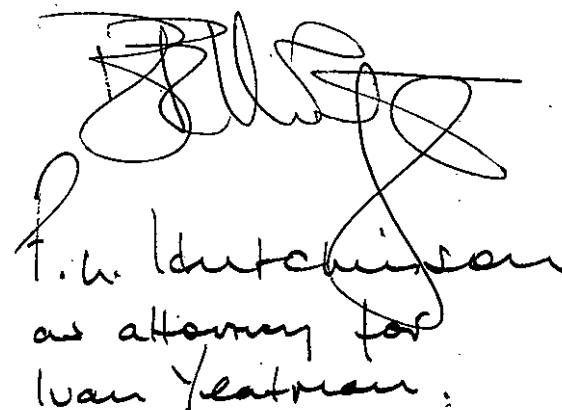 P.h. Hutchinson
as attorney for
Ivan Yeatman.